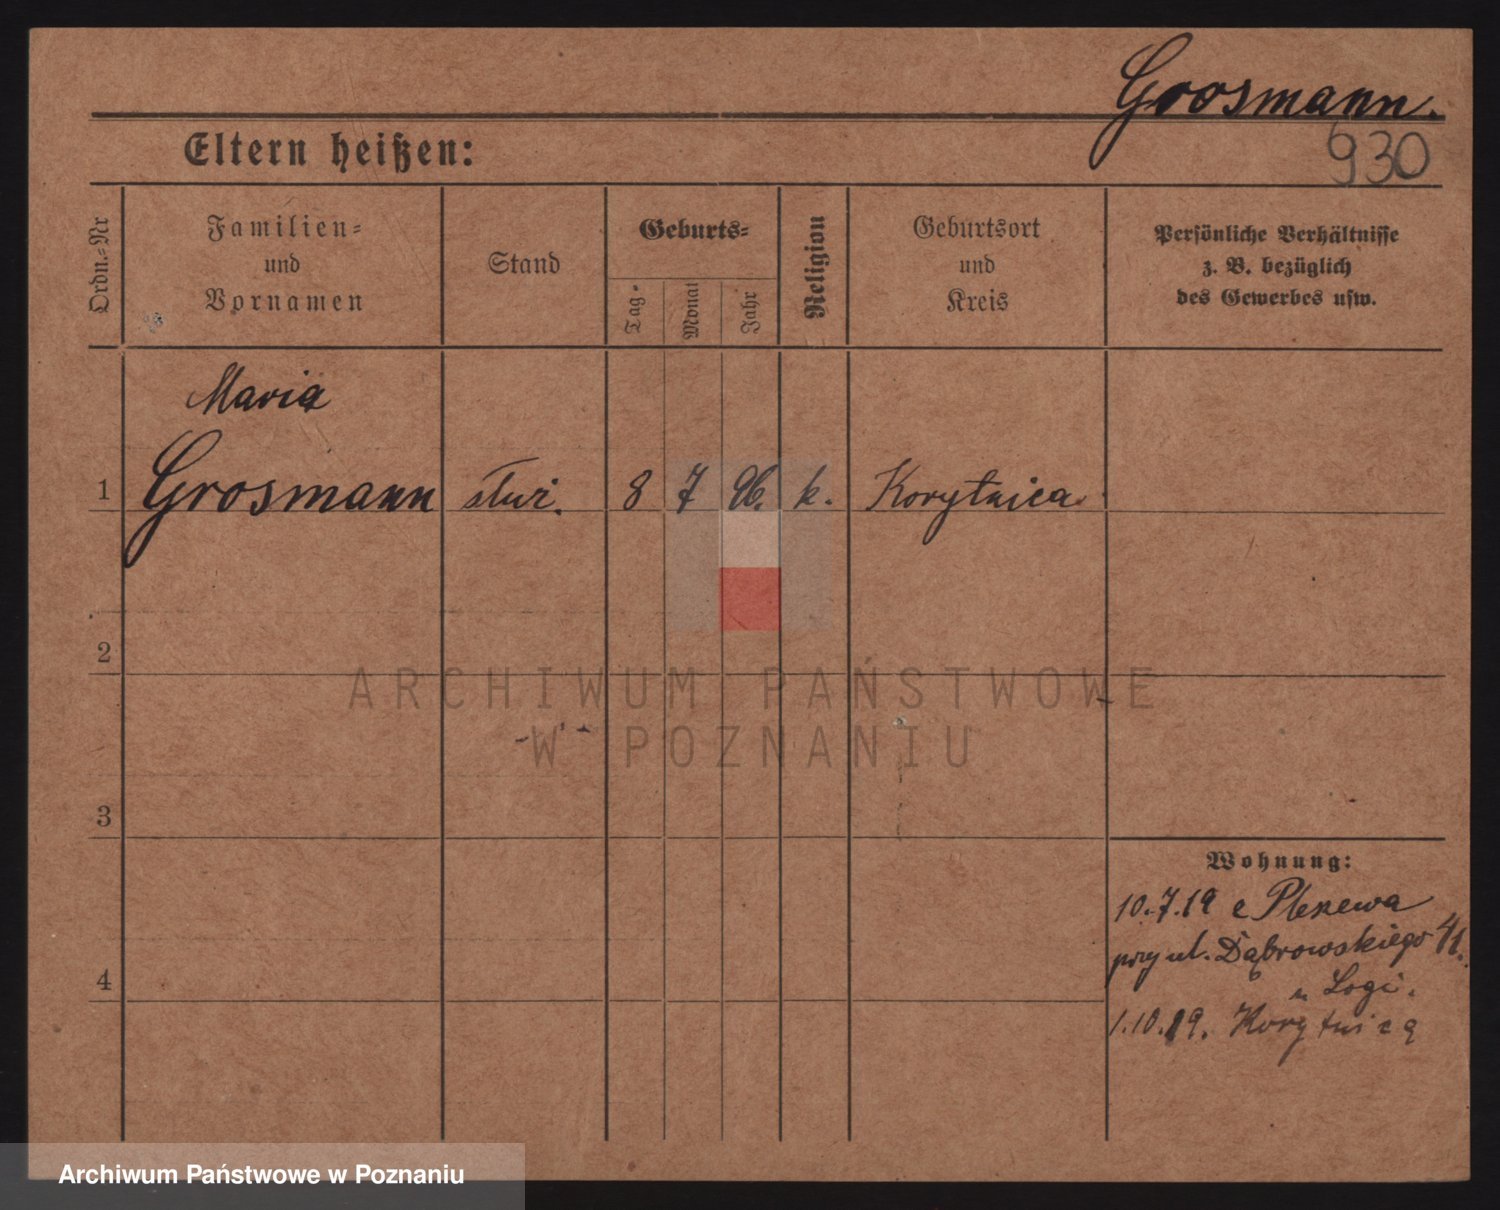 Grosmann.
930
Eltern heißen:
Ordn.-Nr
Familien-
und
Vornamen
Stand
Geburts-
Tag
Monat
Jahr
Religion
Geburtsort
und
Kreis
Persönliche Verhältnisse
z. B. bezüglich
des Gewerbes usw.
Maria
1 Grosmann służ. 8 7 96. k. Korytnica
2
3
4
Wohnung:
10.7.19 z Pleszewa
przy ul. Dąbrowskiego 41.
u Logi.
1.10.19. Korytnicą
ARCHIWUM PAŃSTWOWE
W POZNANIU
Archiwum Państwowe w Poznaniu